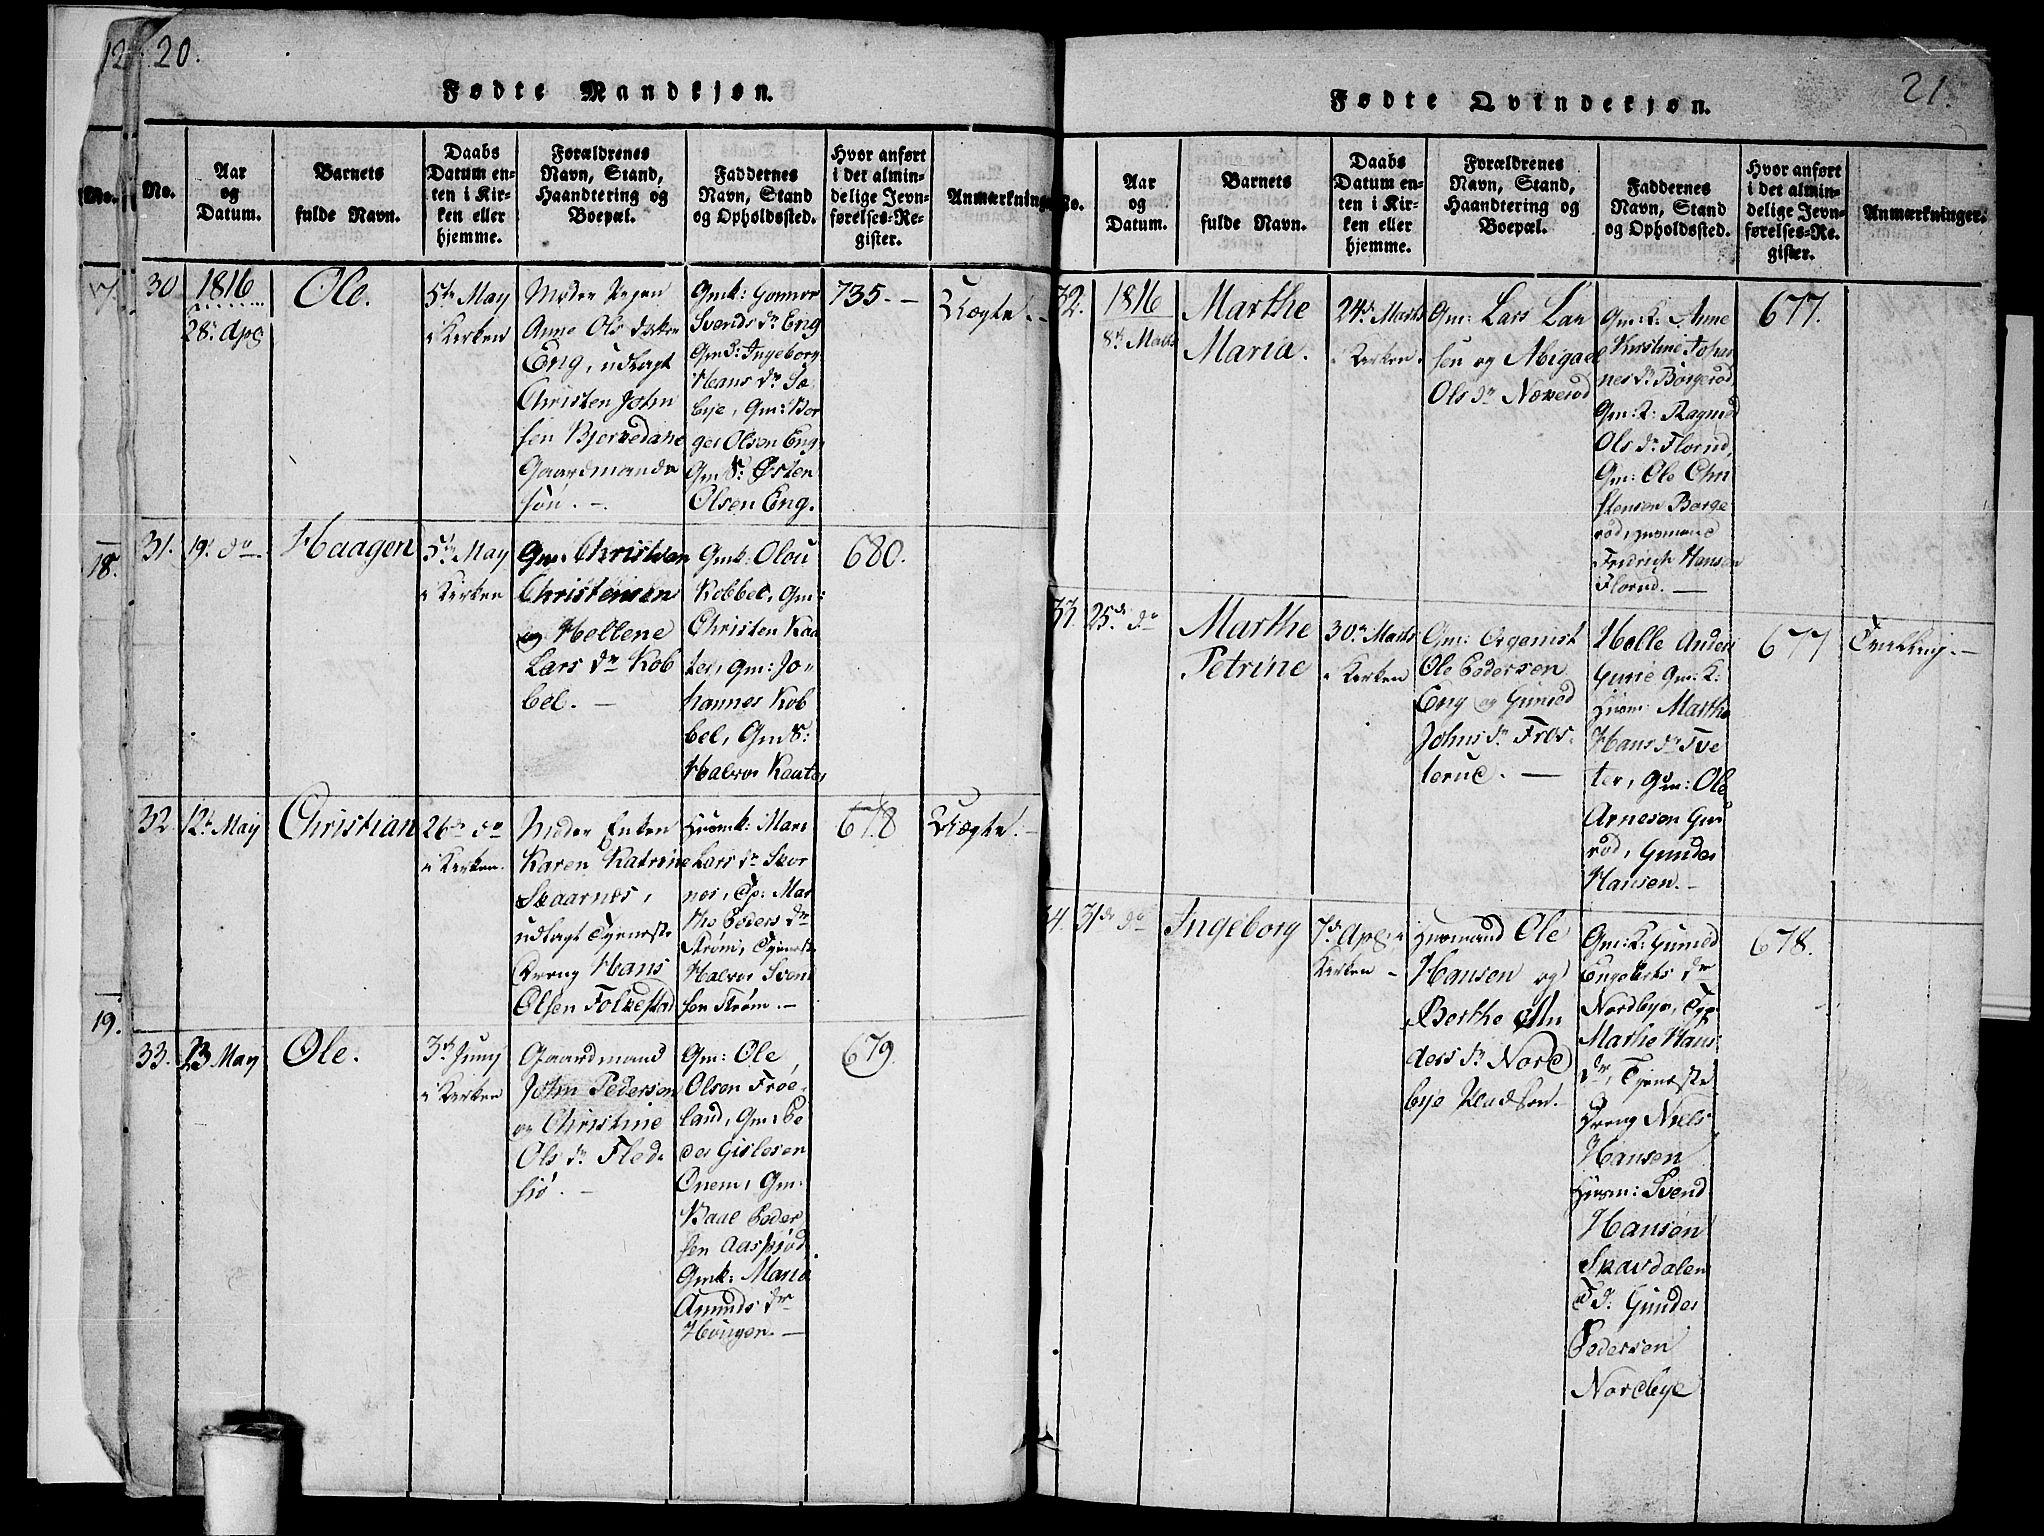 12
20.
Fødte Mandkjøn.
No.
No.
Aar
og
Datum.
Barnets
fulde Navn.
Daabs
Datum en-
ten i Kir-
ken eller
hjemme.
Forældrenes
Navn, Stand,
Haandtering og
Boepæl.
Faddernes
Navn, Stand
og Opholdssted.
Hvor anført
i det almin-
delige Jevn-
førelses-Re-
gister.
Anmærkninger
17.
30
1816
28. Apr
Ole.
5te May
i Kirken
Moder Pigen
Anne Ols dr
Eng, udlagt
Christen John
sen Bjervedahl
Gaardmands
søn. -
Gmk: Gonnor
Svends dr Eng
Gmd: Ingeborg
Hans dr Sæ
bye, Gm: Bør
ger Olsen Eng,
Gm S: Østen
Olsen Eng.
735. -
Uægte. -
18.
31.
19. do
Haagen
5te May
i Kirken
Gm: Christen
Christensen
og Hellene
Lars dr Kob
bel. -
Gmk: Olou
Kobbel, Gm:
Christen Kaa
ter, Gm: Jo-
hannes Kob
bel, Gm S:
Halvor Kaater
680.
32.
12te May
Christian
26de do
i Kirken.
Moder Enken
Karen Katrine
Skaarnes,
udlagt Tjeneste
Dreng Hans
Olsen Folkestad
Huusmk: Mari
Lars dr Skor
nes, Tp: Mar
the Peders dr
Strøm, Tjeneste
Halvor Svend
sen Strøm. -
678
Uægte. -
19.
33.
23 May
Ole.
3de Juny
i Kirken
Gaardmand
John Pedersen
og Christine
Ols dr Fled-
siø. -
Gm: Ole
Olsen Frøe-
land, Gm: Pe
der Gislesen
Onem, Gm:
Paul Peder
sen Aaspiød,
Gmk: Maria
Amunds dr
Hougen. -
679.
21.
Fødte Qvindekjøn.
No.
Aar
og
Datum.
Barnets
fulde Navn.
Daabs
Datum en-
ten i Kir-
ken eller
hjemme.
Forældrenes
Navn, Stand,
Haandtering og
Boepæl.
Faddernes
Navn, Stand
og Opholdssted.
Hvor anført
i det almin-
delige Jevn-
førelses-Re-
gister.
Anmærkninger.
32.
1816
8de Marts
Marthe
Maria.
24de Marts
i Kirken.
Gm: Lars Lar
sen og Abigael
Ols dr Næverød
Gm: K: Anne
Kirstine Johan
nes dr Børgerød,
Gm: K: Ragnild
Ols dr Florud,
Gm: Ole Chri
stensen Børge
rød,
Fredrich Hansen
Florud. -
677.
33.
25de do
Marthe
Petrine
30te Marts
i Kirken
Gm: Organist
Ole Pedersen
Eng og Guneld
Johns dr Fros-
terud. -
Helle Anders
Gm: K:
Huusm: Marthe
Hans dr Tve
ter, Gm: Ole
Arnesen Gur
rød, Gunder
Hansen. -
677
Tvilling. -
34.
31de do
Ingeborg
7de Apr. i
Kirken -
Huusmand Ole
Hansen og
Berthe An
ders dr Nord
bye
Gm: K: Guneld
Engebrets dr
Nordbye, Tp:
Marthe Hans
dr, Tjeneste
Dreng Niels
Hansen
Huusm: Svend
Hansen
Skardalen
Gunder
Pedersen
Nordbye
678.